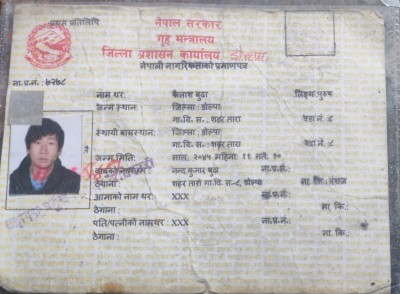 प्रथम प्रतिलिपि
नेपाल सरकार
गृह मन्त्रालय
जिल्ला प्रशासन कार्यालय डोल्पा
नेपाली नागरिकताको प्रमाणपत्र
ना.प्र.नं.: ७२७८
नाम थर: कैलाश बुढा लिङ्ग: पुरुष
जन्म स्थान: जिल्ला: डोल्पा
गा.वि.स.-, शहर तारा वडा नं: ८
स्थायी बासस्थान: जिल्ला: डोल्पा
गा.वि.स.-, शहर तारा वडा नं: ८
जन्म मिति: साल: २०४५ महिना: ११ गते: १०
नन्द कुमार बुढा ना.प्र.नं.:
ठेगाना: शहर तारा गा.वि.स-८, डोल्पा ना. कि.: वंशज
आमाको नाम थर: XXX ना.प्र.नं.:
ठेगाना: ना. कि.:
पति/पत्नीको नामथर: XXX ना.प्र.नं.:
ठेगाना: ना. कि.: